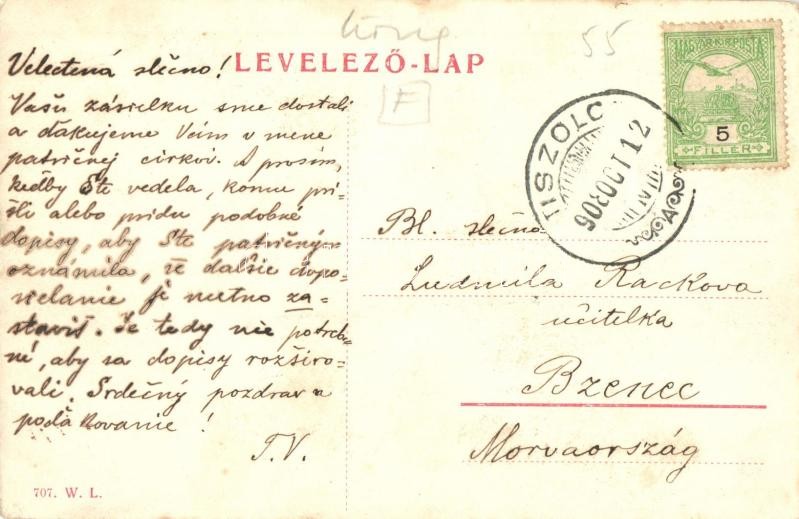 LEVELEZŐ-LAP
55
F
Velectená slečno!
Vašu zásielku sme dostali
a ďakujeme Vám v mene
patričnej cirkvi. A prosím,
keďby Ste vedela, komu pri-
šli alebo prídu podobné
dopisy, aby Ste patričným
oznámila, že ďalšie dopo-
sielanie je nutno za-
staviť. Je tedy nie potreb-
né, aby sa dopisy rozširo-
vali. Srdečný pozdrav a
poďakovanie!
T.V.
707. W. L.
MAGYAR KIR. POSTA
5
FILLÉR
TISZOLC
908 OCT 12
A
Bl. slečna
Ludmila Rackova
učitelka
Bzenec
Morvaország